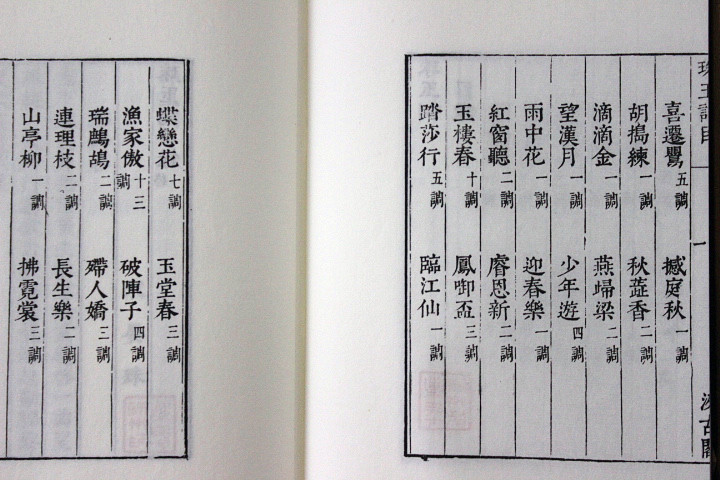 珠玉詞目
一
汲古閣
喜遷鶯 五調 撼庭秋 一調
胡搗練 一調 秋蕋香 二調
滴滴金 一調 燕歸梁 二調
望漢月 一調 少年遊 四調
雨中花 一調 迎春樂 一調
紅窗聽 二調 睿恩新 二調
玉樓春 十調 鳳啣盃 三調
踏莎行 五調 臨江仙 一調
蝶戀花 七調 玉堂春 三調
漁家傲 十三調 破陣子 四調
瑞鷓鴣 二調 殢人嬌 三調
連理枝 二調 長生樂 二調
山亭柳 一調 拂霓裳 三調